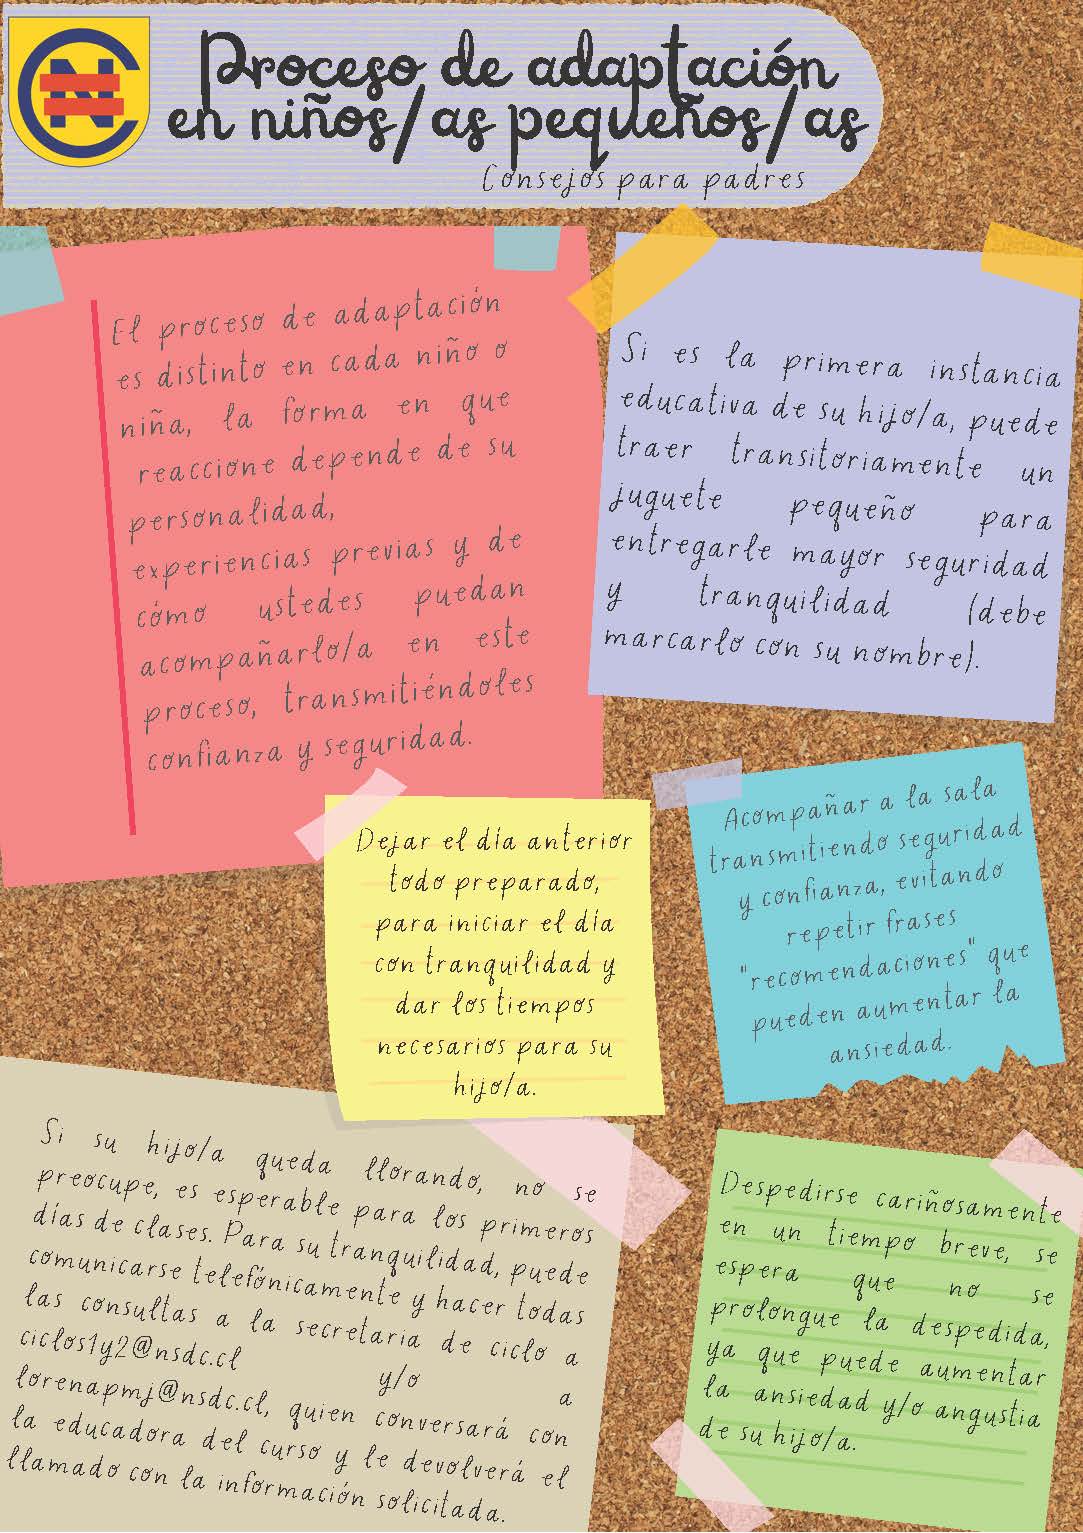 Proceso de adaptación
en niños/as pequeños/as
Consejos para padres
El proceso de adaptación
es distinto en cada niño o
niña, la forma en que
reaccione depende de su
personalidad,
experiencias previas y de
cómo ustedes puedan
acompañarlo/a en este
proceso, transmitiéndoles
confianza y seguridad.
Si es la primera instancia
educativa de su hijo/a, puede
traer transitoriamente un
juguete pequeño para
entregarle mayor seguridad
y tranquilidad (debe
marcarlo con su nombre).
Dejar el día anterior
todo preparado,
para iniciar el día
con tranquilidad y
dar los tiempos
necesarios para su
hijo/a.
Acompañar a la sala
transmitiendo seguridad
y confianza, evitando
repetir frases
"recomendaciones" que
pueden aumentar la
ansiedad.
Si su hijo/a queda llorando, no se
preocupe, es esperable para los primeros
días de clases. Para su tranquilidad, puede
comunicarse telefónicamente y hacer todas
las consultas a la secretaria de ciclo a
ciclos1y2@nsdc.cl y/o a
lorenapmj@nsdc.cl, quien conversará con
la educadora del curso y le devolverá el
llamado con la información solicitada.
Despedirse cariñosamente
en un tiempo breve, se
espera que no se
prolongue la despedida,
ya que puede aumentar
la ansiedad y/o angustia
de su hijo/a.